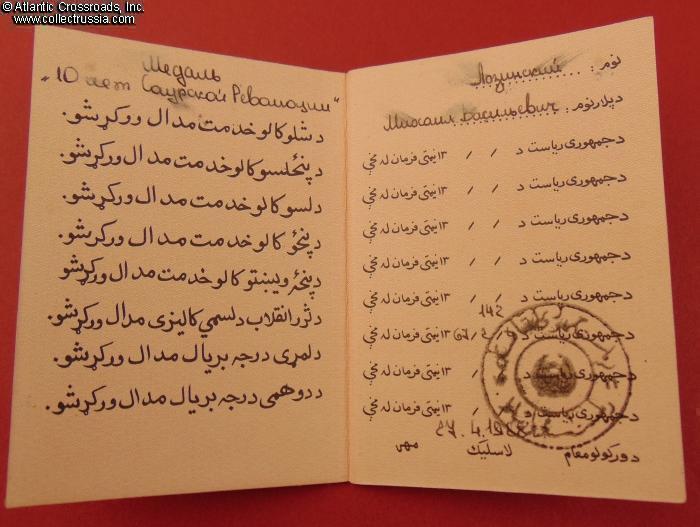 © Atlantic Crossroads, Inc.
www.collectrussia.com
Медаль
"10 лет Саурской Революции"
د شلو کالو خدمت مدال ورکړشو.
د پنځلسو کالو خدمت مدال ورکړشو.
د لسو کالو خدمت مدال ورکړشو.
د پنځو کالو خدمت مدال ورکړشو.
د پنځه ویشتو کالو خدمت مدال ورکړشو
د ثور انقلاب د لسمي کالیزی مدال ورکړشو.
د لمړی درجه بریال مدال ورکړشو.
د دوهمی درجه بریال مدال ورکړشو.
نوم: Лозинский
د پلار نوم: Михаил Васильевич
د جمهوری ریاست د / / ۱۳ نیټی فرمان له مخې
د جمهوری ریاست د / / ۱۳ نیټی فرمان له مخې
د جمهوری ریاست د / / ۱۳ نیټی فرمان له مخې
د جمهوری ریاست د / / ۱۳ نیټی فرمان له مخې
142
د جمهوری ریاست د / ۱۳ نیټی فرمان له مخې
د جمهوری ریاست د / / ۱۳ نیټی فرمان له مخې
د جمهوری ریاست د / / ۱۳ نیټی فرمان له مخې
27.4.19
د ورکولو مقام لاسلیک مهر